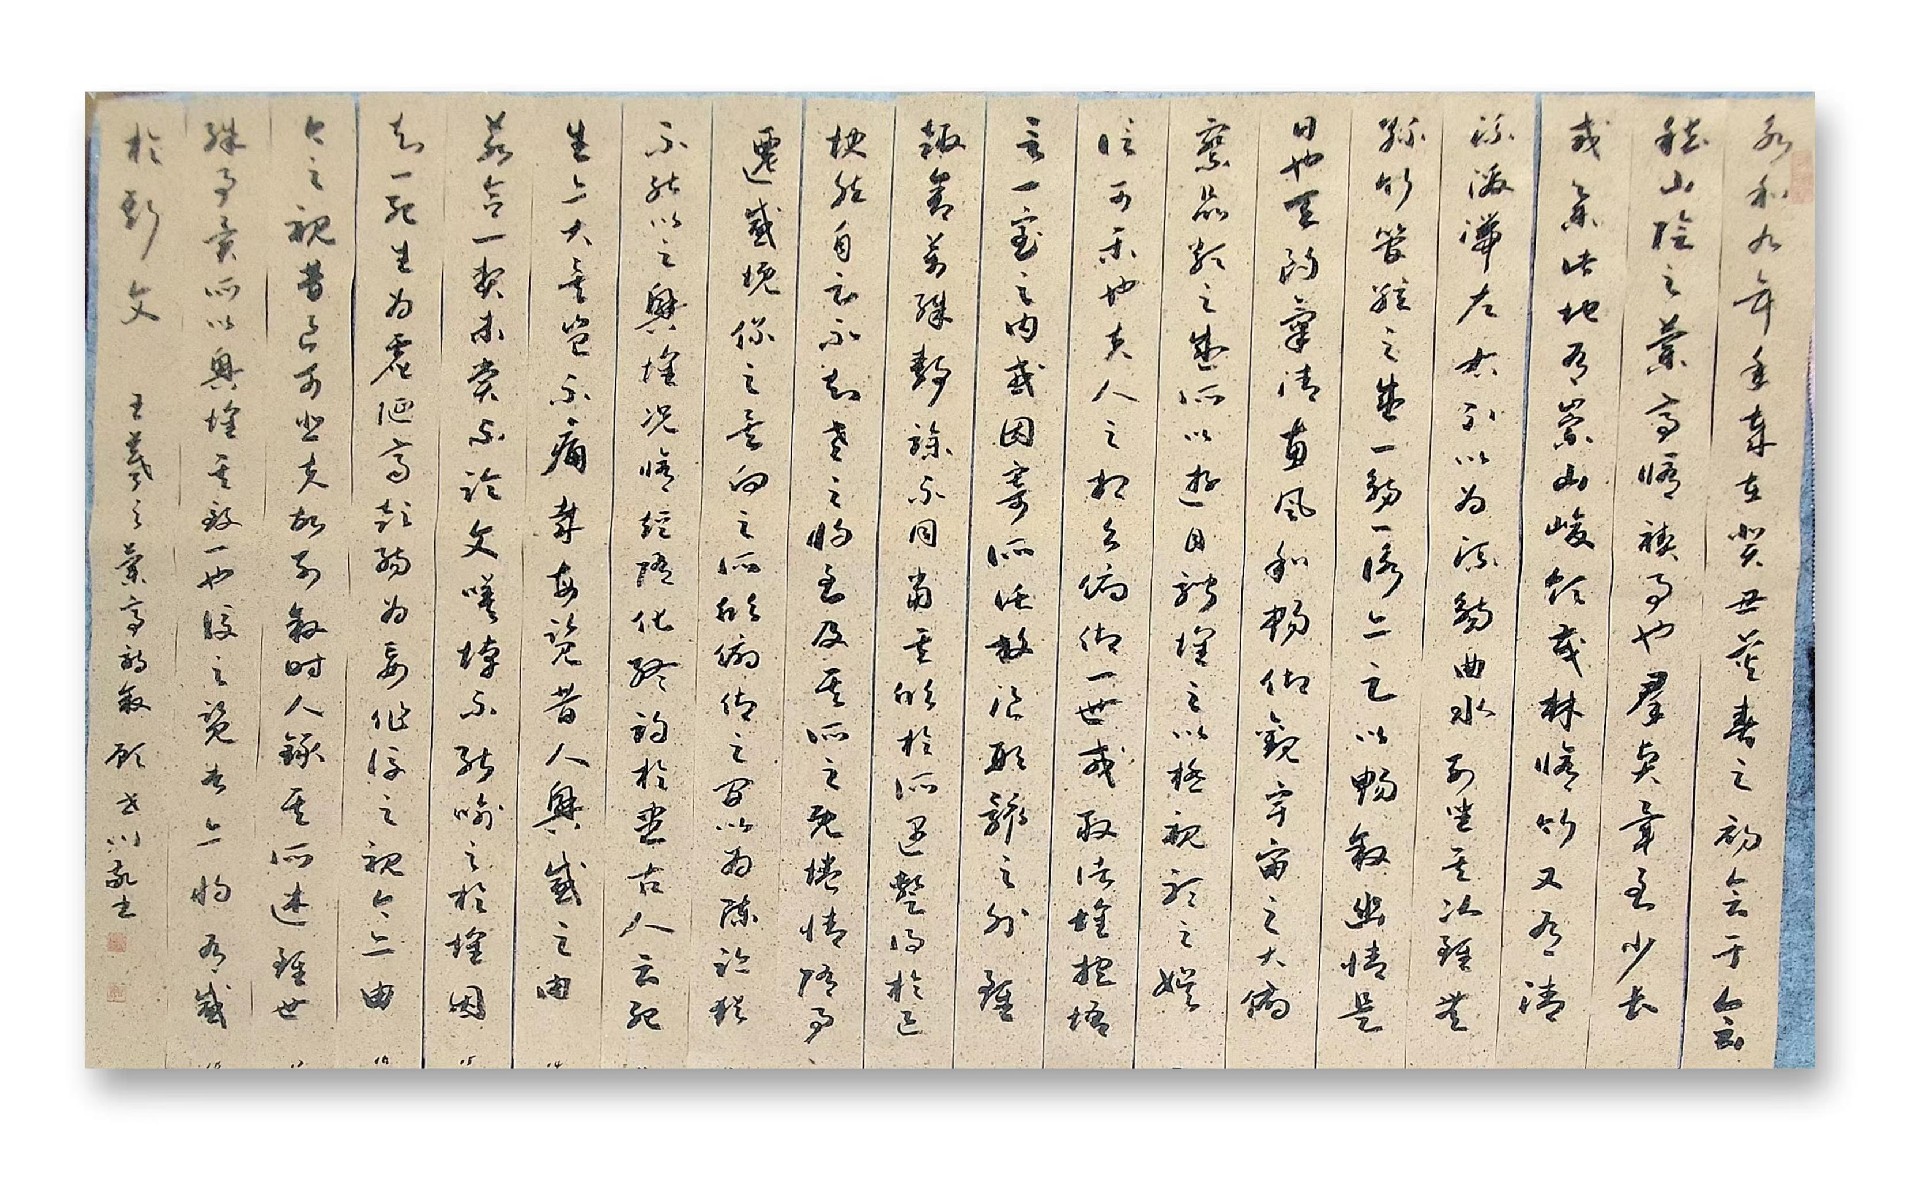 永和九年歲在癸丑暮春之初会于會
稽山陰之蘭亭脩禊事也羣賢畢至少長
咸集此地有崇山峻領茂林脩竹又有清
流激湍左右引以為流觴曲水列坐其次雖無
絲竹管弦之盛一觴一詠亦足以暢敘幽情是
日也天朗氣清惠風和暢仰觀宇宙之大俯
察品類之盛所以遊目騁懷足以極視聽之娛
信可樂也夫人之相與俯仰一世或取諸懷抱悟
言一室之內或因寄所託放浪形骸之外雖
趣舍萬殊靜躁不同當其欣於所遇暫得於己
快然自足不知老之將至及其所之既惓情隨事
遷感慨係之矣向之所欣俛仰之間以為陳迹猶
不能以之興懷況脩短隨化終期於盡古人云死
生亦大矣豈不痛哉每覽昔人興感之由
若合一契未嘗不臨文嗟悼不能喻之於懷固
知一死生為虛誕齊彭殤為妄作後之視今亦由
今之視昔已可悲夫故列敘時人錄其所述雖世
殊事異所以興懷其致一也後之覽者亦將有感
於斯文 王羲之蘭亭詩敘 川敬書